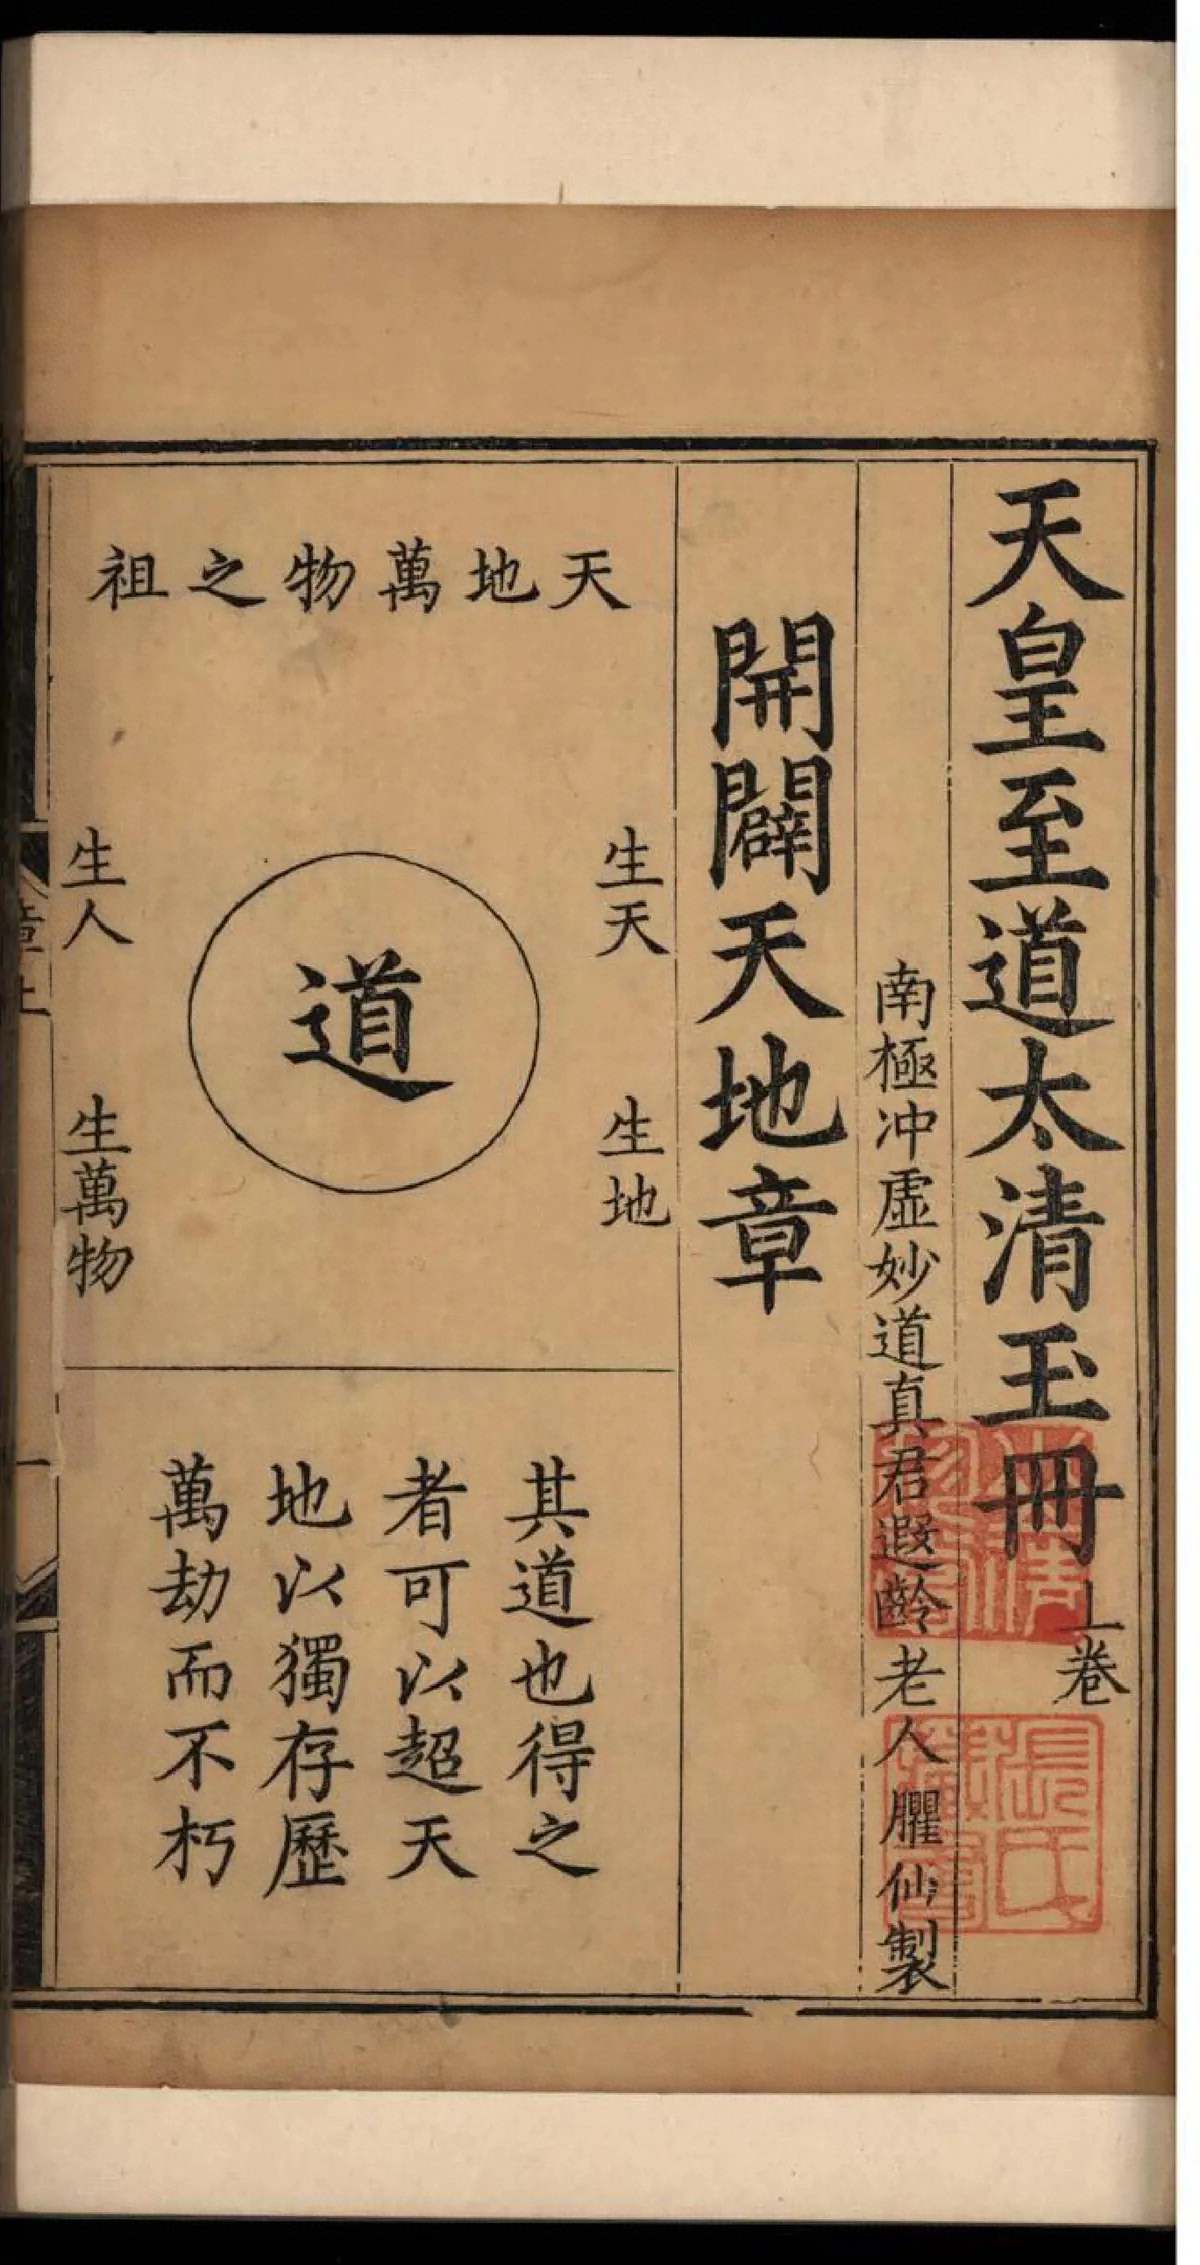 天皇至道太清玉冊上卷
南極冲虛妙道真君遐齡老人臞仙製
開闢天地章
天地萬物之祖
生天
生地
道
生人
生萬物
其道也得之
者可以超天
地以獨存歷
萬劫而不朽
章上
一
張氏